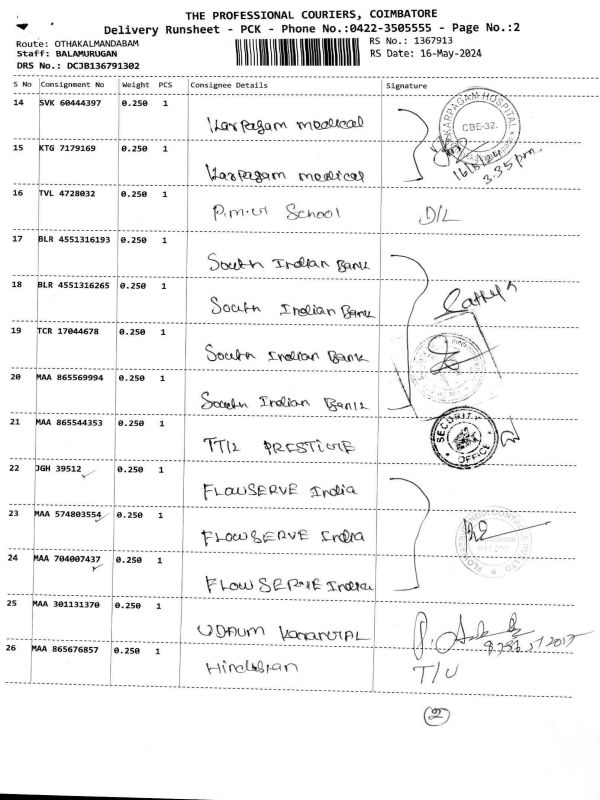 THE PROFESSIONAL COURIERS, COIMBATORE
Delivery Runsheet - PCK - Phone No.:0422-3505555 - Page No.:2
Route: OTHAKALMANDABAM
Staff: BALAMURUGAN
DRS No.: DCJB136791302
RS No.: 1367913
RS Date: 16-May-2024
S No Consignment No Weight PCS Consignee Details Signature
14 SVK 60444397 0.250 1 Karpagam medical
KARPAGAM HOSPITAL
CBE-32.
16/5/24
3.35 pm.
15 KTG 7179169 0.250 1 Karpagam medical
16 TVL 4728032 0.250 1 School D/L
17 BLR 4551316193 0.250 1 South Indian Bank
18 BLR 4551316265 0.250 1 South Indian Bank
19 TCR 17044678 0.250 1 South Indian Bank
20 MAA 865569994 0.250 1 South Indian Bank
21 MAA 865544353 0.250 1 PRESTIGE
SECURITY OFFICE
22 JGH 39512 0.250 1 FLOWSERVE India
23 MAA 574803554 0.250 1 FLOWSERVE India
24 MAA 704007437 0.250 1 FLOWSERVE India
25 MAA 301131370 0.250 1
26 MAA 865676857 0.250 1 T/U
2